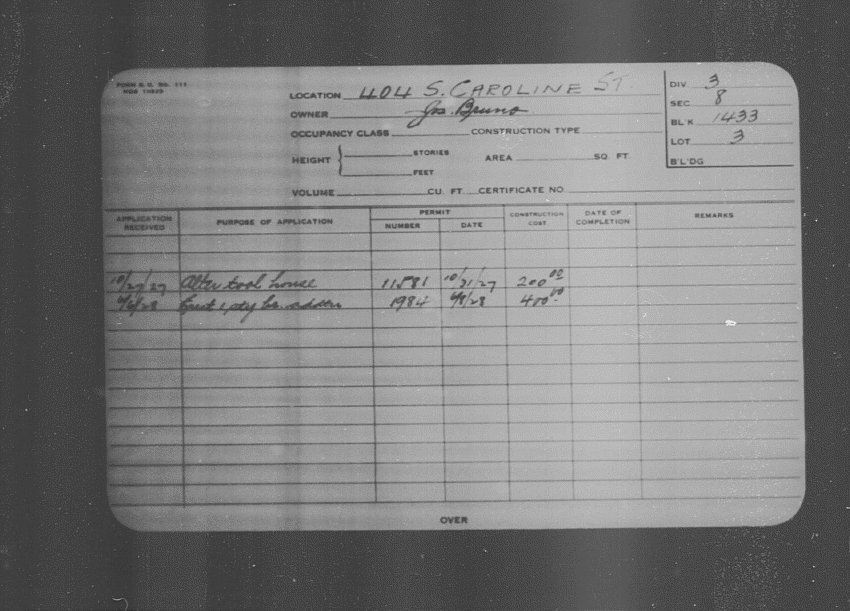 FORM B. O. NO. 111
LOCATION 404 S. CAROLINE ST
OWNER Jos. Bruno
OCCUPANCY CLASS CONSTRUCTION TYPE
HEIGHT STORIES FEET AREA SQ. FT.
VOLUME CU. FT CERTIFICATE NO
DIV 3
SEC 8
BL'K 1433
LOT 3
B'L'DG
APPLICATION RECEIVED PURPOSE OF APPLICATION PERMIT NUMBER DATE CONSTRUCTION COST DATE OF COMPLETION REMARKS
10/27/27 Alter tool house 11581 10/31/27 200 00
Erect 1 sty br. addn 1984 400 00
OVER